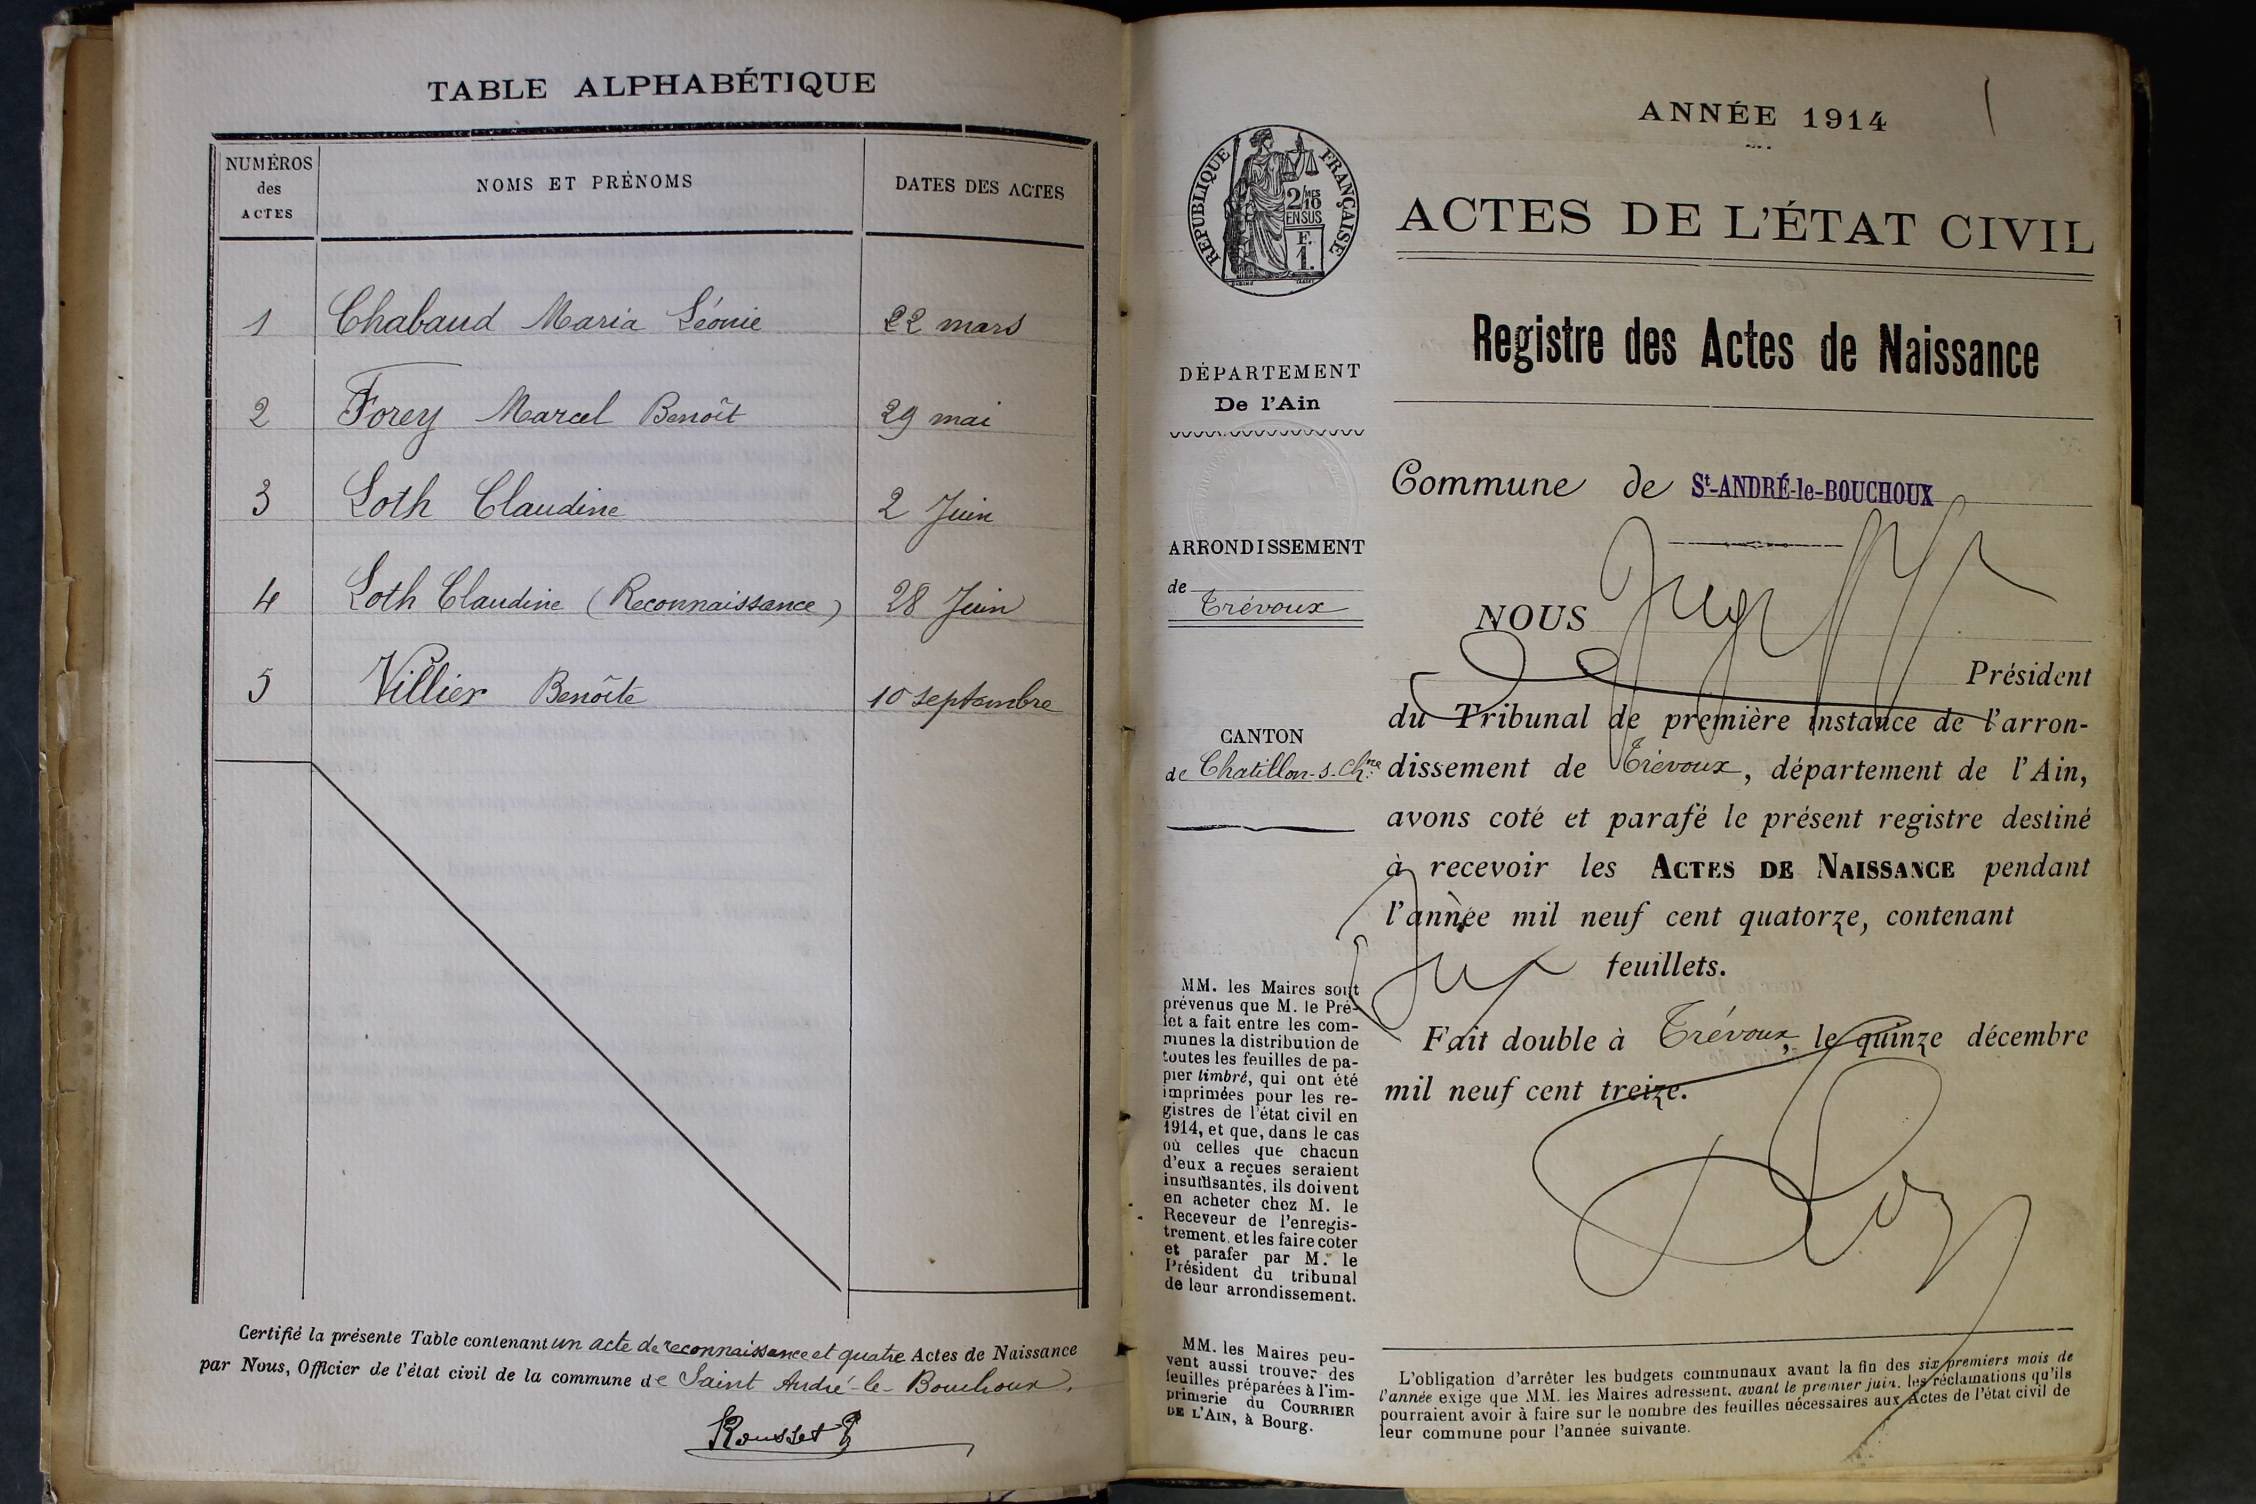 TABLE ALPHABÉTIQUE
NUMÉROS des ACTES
NOMS ET PRÉNOMS
DATES DES ACTES
1 Chabaud Maria Léonie 22 mars
2 Forey Marcel Benoît 29 mai
3 Loth Claudine 2 Juin
4 Loth Claudine (Reconnaissance) 28 Juin
5 Villier Benoîte 10 septembre
Certifié la présente Table contenant un acte de reconnaissance et quatre Actes de Naissance
par Nous, Officier de l'état civil de la commune de Saint André-le-Bouchoux.
Rousset
ANNÉE 1914
1
RÉPUBLIQUE FRANÇAISE
2/10 MES
EN SUS
F.
1.
ACTES DE L'ÉTAT CIVIL
Registre des Actes de Naissance
DÉPARTEMENT
De l'Ain
ARRONDISSEMENT
de Trévoux
CANTON
de Chatillon-s-Chne
MM. les Maires sont
prévenus que M. le Pré-
fet a fait entre les com-
munes la distribution de
toutes les feuilles de pa-
pier timbré, qui ont été
imprimées pour les re-
gistres de l'état civil en
1914, et que, dans le cas
où celles que chacun
d'eux a reçues seraient
insuffisantes, ils doivent
en acheter chez M. le
Receveur de l'enregis-
trement, et les faire coter
et parafer par M. le
Président du tribunal
de leur arrondissement.
MM. les Maires peu-
vent aussi trouver des
feuilles préparées à l'im-
primerie du COURRIER
DE L'AIN, à Bourg.
Commune de St-ANDRÉ-le-BOUCHOUX
NOUS
Président
du Tribunal de première instance de l'arron-
dissement de Trévoux, département de l'Ain,
avons coté et parafé le présent registre destiné
à recevoir les ACTES DE NAISSANCE pendant
l'année mil neuf cent quatorze, contenant
feuillets.
Fait double à Trévoux, le quinze décembre
mil neuf cent treize.
L'obligation d'arrêter les budgets communaux avant la fin des six premiers mois de
l'année exige que MM. les Maires adressent, avant le premier juin, les réclamations qu'ils
pourraient avoir à faire sur le nombre des feuilles nécessaires aux Actes de l'état civil de
leur commune pour l'année suivante.